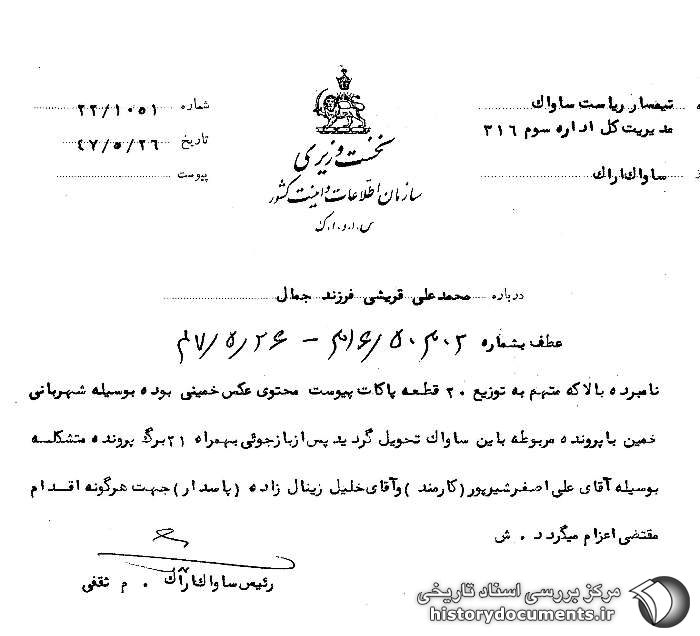 تیمسار ریاست ساواک
مدیریت کل اداره سوم ۳۱۶
ساواک اراک
نخست وزیری
سازمان اطلاعات و امنیت کشور
س.ا.و.ا.ک
شماره ۲۲/۱۰۵۱
تاریخ ۴۷/۵/۲۶
پیوست
درباره محمدعلی قریشی فرزند جمال
عطف بشماره ۳۱۶/۵۰۳۰۲ – ۴۷/۵/۲۶
نامبرده بالا که متهم به توزیع ۲۰ قطعه پاکات پیوست محتوی عکس خمینی بوده بوسیله شهربانی
خمین با پرونده مربوطه باین ساواک تحویل گردید پس از بازجوئی بهمراه ۲۱ برگ پرونده متشکله
بوسیله آقای علی اصغر شیرپور (کارمند) و آقای خلیل زینال زاده (پاسدار) جهت هرگونه اقدام
مقتضی اعزام میگردد . ش
رئیس ساواک اراک . م ثقفی
مرکز بررسی اسناد تاریخی
historydocuments.ir